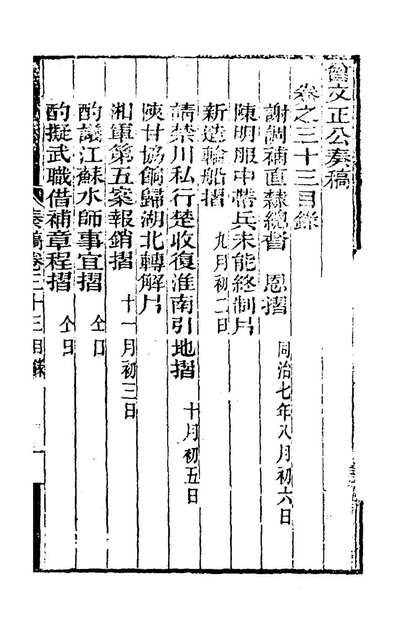 曾文正公奏稿
卷之三十三目錄
謝調補直隸總督　恩摺　同治七年八月初六日
陳明服中帶兵未能終制片
新造輪船摺　九月初二日
請禁川私行楚收復淮南引地摺　十月初五日
陝甘協餉歸湖北轉解片
湘軍第五案報銷摺　十一月初三日
酌議江蘇水師事宜摺　仝日
酌擬武職借補章程摺　仝日
奏稿卷三十三目錄